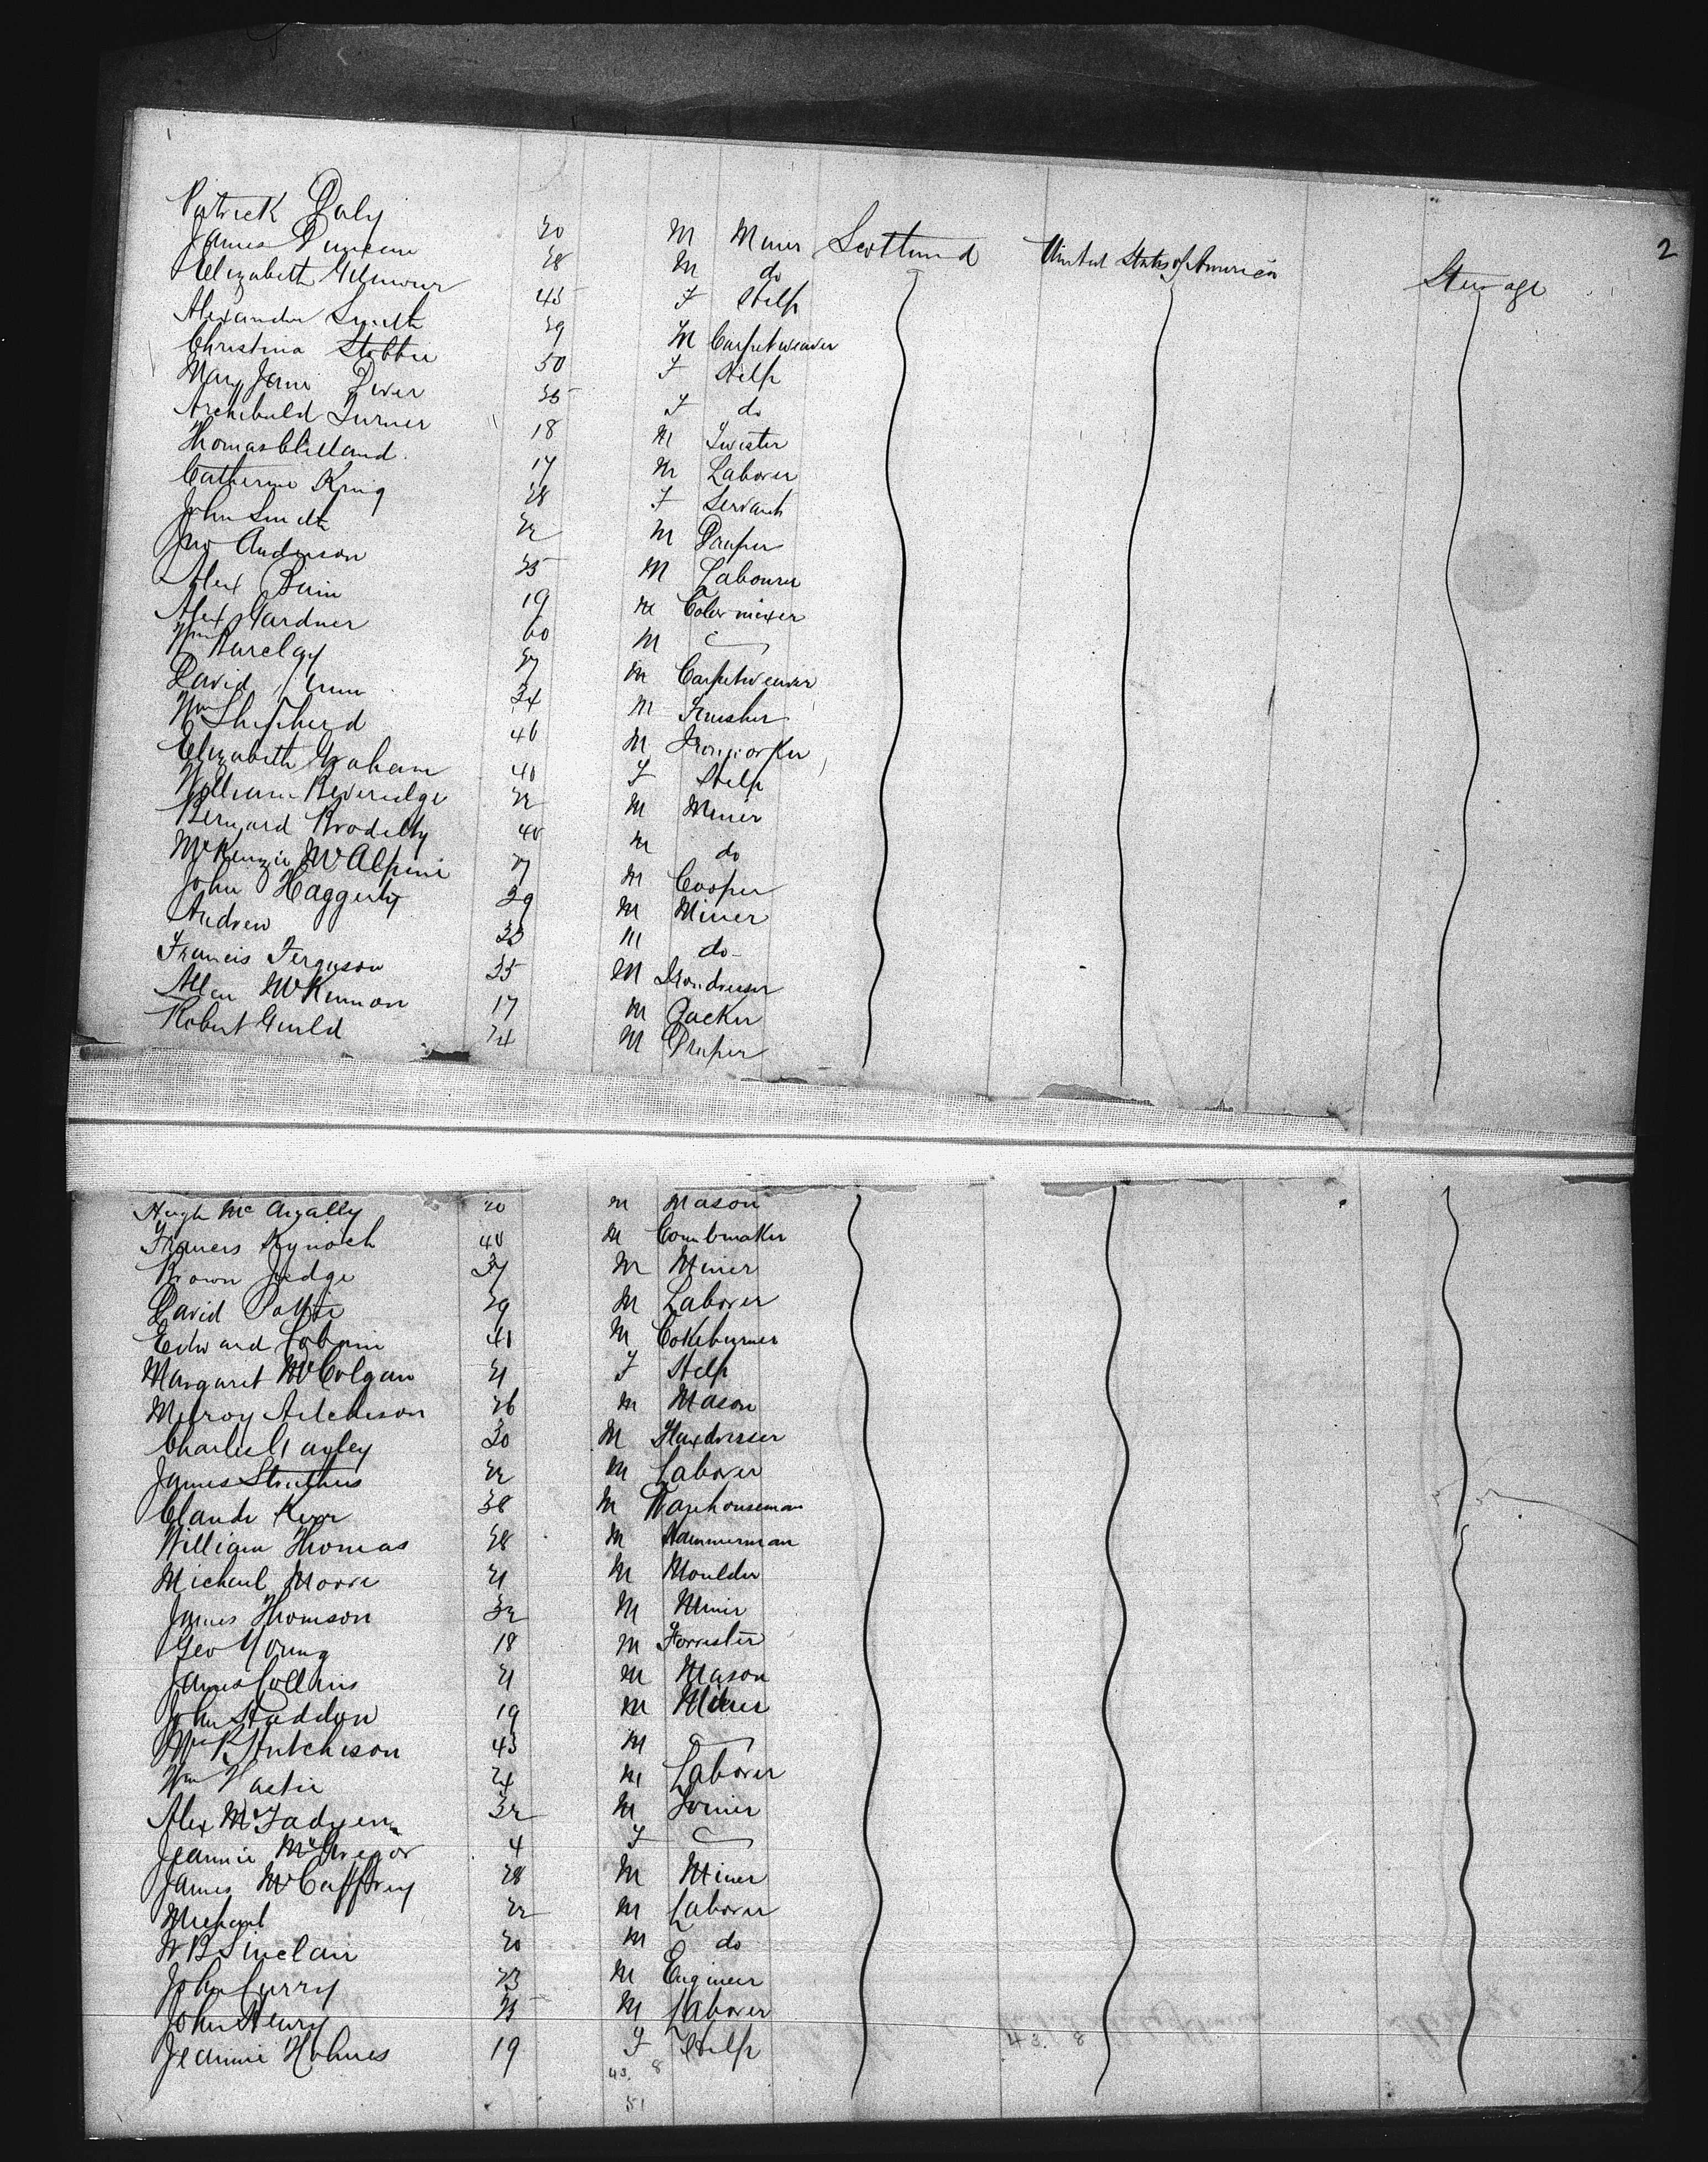 2
Patrick Daly 20 M Miner Scotland United States of America Steerage
James Duncan 28 M do
Elizabeth Gilmour 45 F Help
Alexander Smith 29 M Carpetweaver
Christina Stobbie 50 F Help
Mary Jane Dever 35 F do
Archibald Turner 18 M Twister
Thomas Clelland 17 M Laborer
Catherine King 28 F Servant
John Smith 22 M Draper
Jno Anderson 25 M Labourer
Alex Bain 19 M Color mixer
Alex Gardner 60 M
Wm Barclay 27 M Carpetweaver
David 24 M Finisher
Wm Shepherd 46 M Ironworker
Elizabeth Graham 40 F Help
William Beveridge 22 M Miner
Bernard Brodilly 40 M do
McKenzie McAlpine 27 M Cooper
John Haggerty 29 M Miner
Andrew 23 M do
Francis Ferguson 35 M
Allan McKinnon 17 M Packer
Robert Guild 24 M Draper
Hugh Mc Anally 20 M Mason
Francis Kynoch 40 M Combmaker
Brown Judge 37 M Miner
David Pattie 29 M Laborer
Edward 41 M Cokeburner
Margaret McColgan 21 F Help
Milroy Aitchison 26 M Mason
Charles Gayley 30 M Flaxdresser
James Struthers 22 M Laborer
Claude Kerr 38 M Warehouseman
William Thomas 28 M Hammerman
Michael Moore 21 M Moulder
James Thomson 32 M Miner
Geo Young 18 M Forrester
James Collins 21 M Mason
John Haddon 19 M Miner
Wm R Hutcheson 43 M
Wm Hastie 24 M Laborer
Alex McFadyen 32 M Joiner
Jeannie McGregor 4 F
James McCaffrey 28 M Miner
Michael 22 M Laborer
W B Sinclair 20 M do
John Curry 23 M Engineer
John Henry 25 M Laborer
Jeannie Holmes 19 F Help
43. 8 43. 8
51